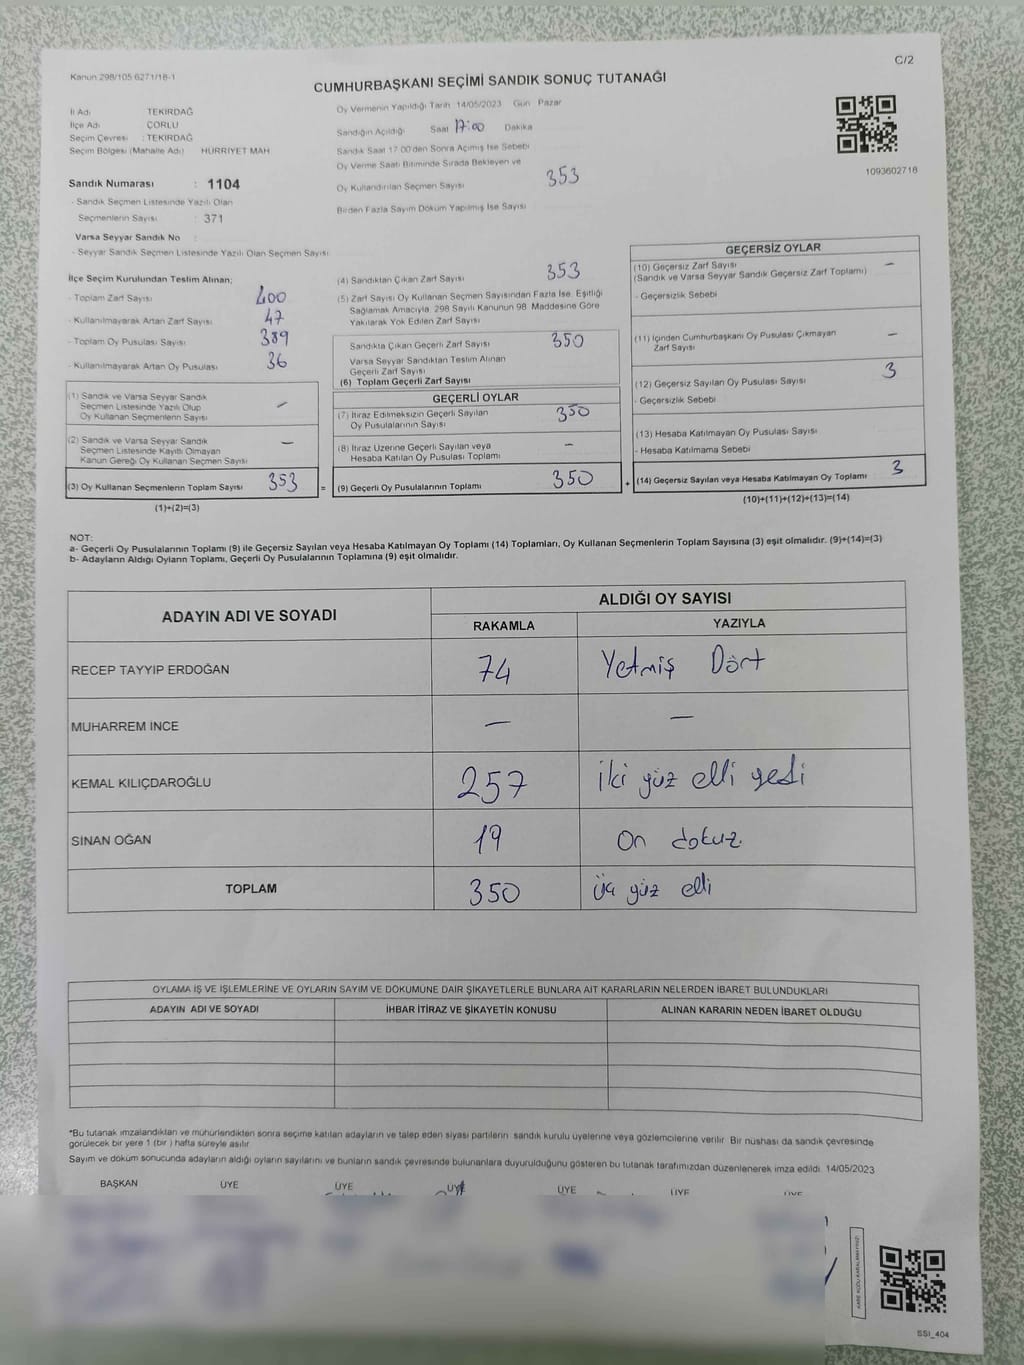 Kanun 298/105 6271/18-1
C/2
CUMHURBAŞKANI SEÇİMİ SANDIK SONUÇ TUTANAĞI
İl Adı TEKİRDAĞ
İlçe Adı ÇORLU
Seçim Çevresi : TEKİRDAĞ
Seçim Bölgesi (Mahalle Adı) HÜRRİYET MAH
Sandık Numarası : 1104
- Sandık Seçmen Listesinde Yazılı Olan
Seçmenlerin Sayısı : 371
Varsa Seyyar Sandık No :
- Seyyar Sandık Seçmen Listesinde Yazılı Olan Seçmen Sayısı
Oy Vermenin Yapıldığı Tarih 14/05/2023 Gün Pazar
Sandığın Açıldığı Saat 17:00 Dakika
Sandık Saat 17.00'den Sonra Açılmış İse Sebebi
Oy Verme Saati Bitiminde Sırada Bekleyen ve
Oy Kullandırılan Seçmen Sayısı 353
Birden Fazla Sayım Döküm Yapılmış İse Sayısı
1093602718
İlçe Seçim Kurulundan Teslim Alınan;
- Toplam Zarf Sayısı 400
- Kullanılmayarak Artan Zarf Sayısı 47
- Toplam Oy Pusulası Sayısı 389
- Kullanılmayarak Artan Oy Pusulası 36
(1) Sandık ve Varsa Seyyar Sandık
Seçmen Listesinde Yazılı Olup
Oy Kullanan Seçmenlerin Sayısı —
(2) Sandık ve Varsa Seyyar Sandık
Seçmen Listesinde Kayıtlı Olmayan
Kanun Gereği Oy Kullanan Seçmen Sayısı —
(3) Oy Kullanan Seçmenlerin Toplam Sayısı 353 =
(1)+(2)=(3)
(4) Sandıktan Çıkan Zarf Sayısı 353
(5) Zarf Sayısı Oy Kullanan Seçmen Sayısından Fazla İse, Eşitliği
Sağlamak Amacıyla, 298 Sayılı Kanunun 98. Maddesine Göre
Yakılarak Yok Edilen Zarf Sayısı
Sandıkta Çıkan Geçerli Zarf Sayısı 350
Varsa Seyyar Sandıktan Teslim Alınan
Geçerli Zarf Sayısı
(6) Toplam Geçerli Zarf Sayısı
GEÇERLİ OYLAR
(7) İtiraz Edilmeksizin Geçerli Sayılan
Oy Pusulalarının Sayısı 350
(8) İtiraz Üzerine Geçerli Sayılan veya
Hesaba Katılan Oy Pusulası Toplamı —
(9) Geçerli Oy Pusulalarının Toplamı 350 +
GEÇERSİZ OYLAR
(10) Geçersiz Zarf Sayısı —
(Sandık ve Varsa Seyyar Sandık Geçersiz Zarf Toplamı)
- Geçersizlik Sebebi
(11) İçinden Cumhurbaşkanı Oy Pusulası Çıkmayan
Zarf Sayısı —
(12) Geçersiz Sayılan Oy Pusulası Sayısı 3
- Geçersizlik Sebebi
(13) Hesaba Katılmayan Oy Pusulası Sayısı
- Hesaba Katılmama Sebebi
(14) Geçersiz Sayılan veya Hesaba Katılmayan Oy Toplamı 3
(10)+(11)+(12)+(13)=(14)
NOT:
a- Geçerli Oy Pusulalarının Toplamı (9) ile Geçersiz Sayılan veya Hesaba Katılmayan Oy Toplamı (14) Toplamları, Oy Kullanan Seçmenlerin Toplam Sayısına (3) eşit olmalıdır. (9)+(14)=(3)
b- Adayların Aldığı Oyların Toplamı, Geçerli Oy Pusulalarının Toplamına (9) eşit olmalıdır.
ADAYIN ADI VE SOYADI ALDIĞI OY SAYISI
RAKAMLA YAZIYLA
RECEP TAYYİP ERDOĞAN 74 Yetmiş Dört
MUHARREM İNCE — —
KEMAL KILIÇDAROĞLU 257 iki yüz elli yedi
SİNAN OĞAN 19 On dokuz
TOPLAM 350 üç yüz elli
OYLAMA İŞ VE İŞLEMLERİNE VE OYLARIN SAYIM VE DÖKÜMÜNE DAİR ŞİKAYETLERLE BUNLARA AİT KARARLARIN NELERDEN İBARET BULUNDUKLARI
ADAYIN ADI VE SOYADI İHBAR İTİRAZ VE ŞİKAYETİN KONUSU ALINAN KARARIN NEDEN İBARET OLDUĞU
*Bu tutanak imzalandıktan ve mühürlendikten sonra seçime katılan adayların ve talep eden siyasi partilerin sandık kurulu üyelerine veya gözlemcilerine verilir. Bir nüshası da sandık çevresinde
görülecek bir yere 1 (bir ) hafta süreyle asılır
Sayım ve döküm sonucunda adayların aldığı oyların sayılarını ve bunların sandık çevresinde bulunanlara duyurulduğunu gösteren bu tutanak tarafımızdan düzenlenerek imza edildi. 14/05/2023
BAŞKAN ÜYE ÜYE ÜYE ÜYE ÜYE ÜYE
SSI_404